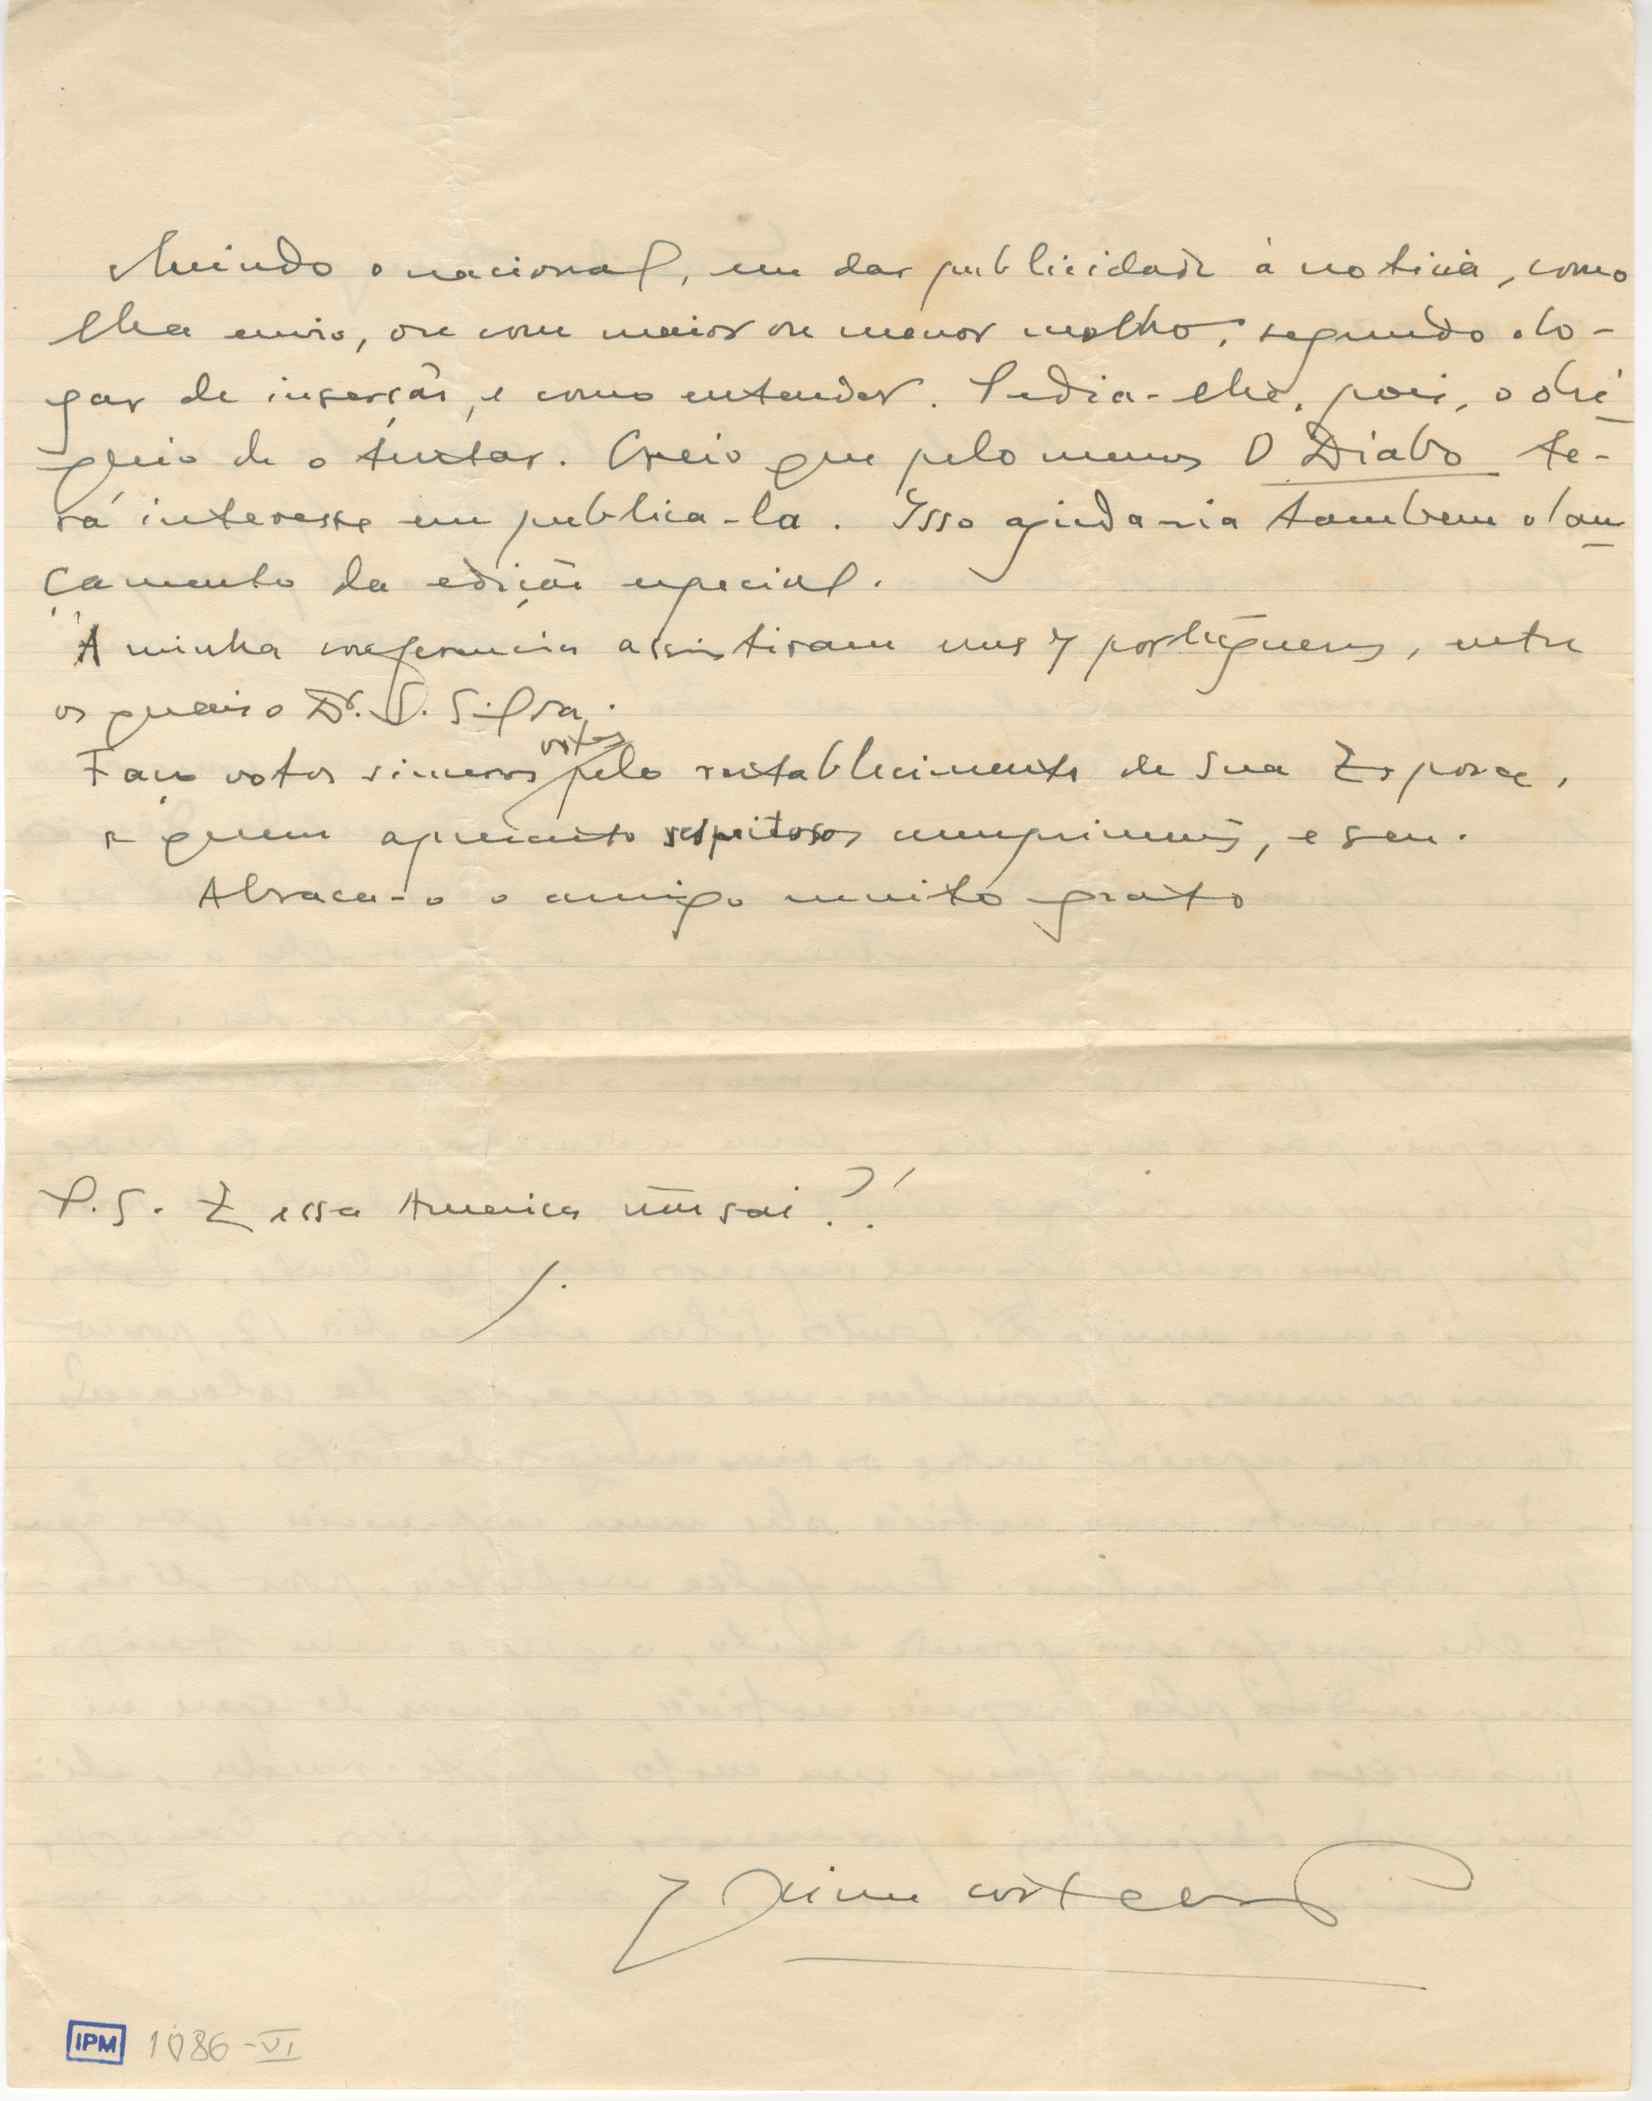 cluindo o nacional, em dar publicidade á noticia, como
lha envio, ou com maior ou menor molho, segundo o lo-
gar de inserção, e como entender. Pedia-lhe, pois, o obsé-
quio de o tentar. Creio que pelo menos O Diabo te-
rá interesse em publica-la. Isso ajudaria tambem o lan-
çamento da edição especial.
Á minha conferencia assistiram uns 7 portugueses, entre
os quais o Dr. S. Silva.
Faço votos sinceros pelo restablecimento de Sua Esposa,
a quem apresento respeitosos cumprimentos, e seu.
Abraça-o o amigo muito grato
P.S. E essa America não sai?!
J.
Jaime Cortesão
IPM 1086-VI